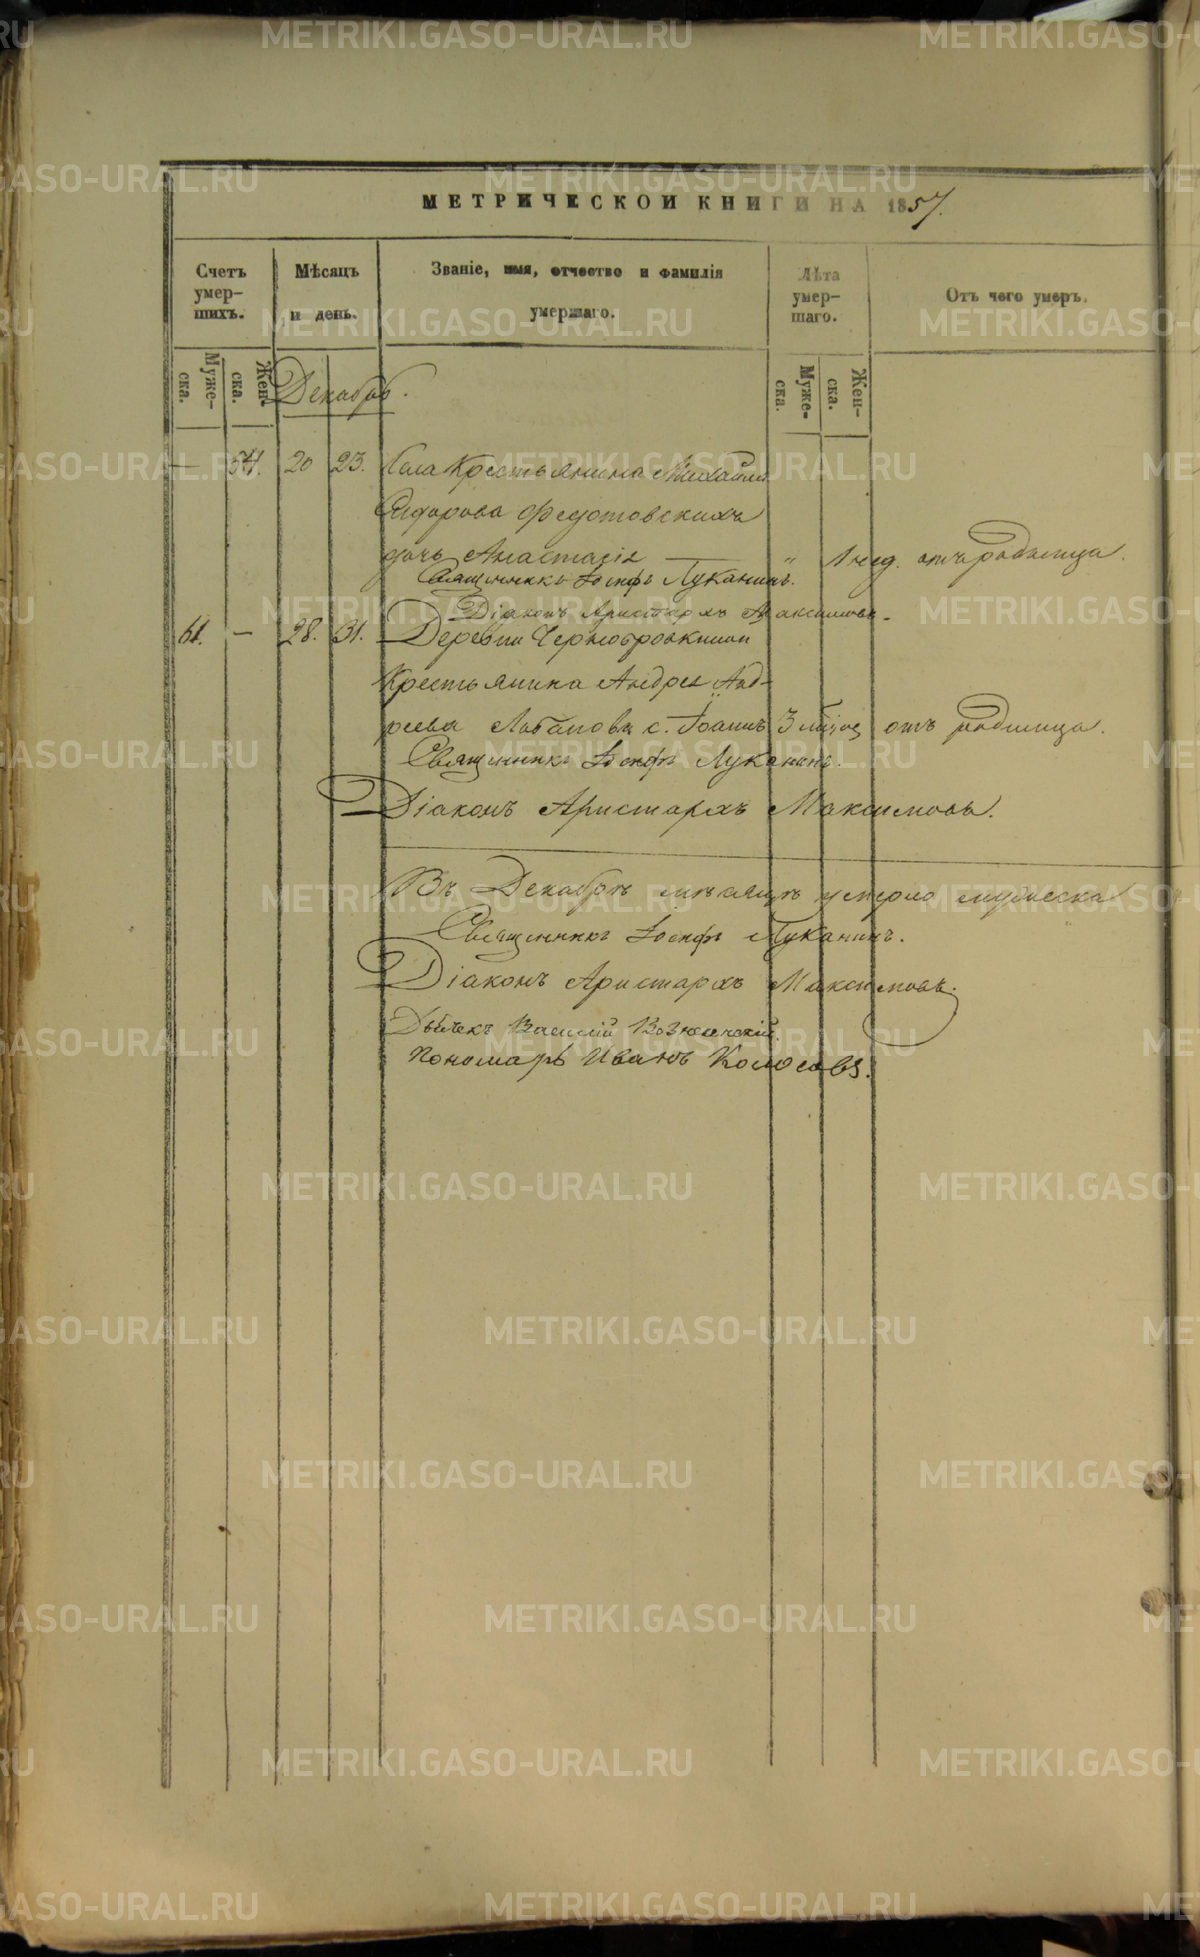 МЕТРИЧЕСКОЙ КНИГИ НА 1857.
Счетъ умер-шихъ.
Мѣсяцъ и день.
Званіе, имя, отчество и фамилія умершаго.
Лѣта умер-шаго.
Отъ чего умеръ.
Муже-ска.
Жен-ска.
Муже-ска.
Жен-ска.
Декабрь.
— 54. 20 23. Села Крестьянина Михаила
Сидорова Федотовскихъ
дочь Анастасія — " 1 нед. отъ родимца.
Священникъ Іосифъ Луканинъ.
Діаконъ Аристархъ Максимовъ.
61. — 28. 31. Деревни
Крестьянина Андрея Анд-
реева Лобанова с. Іоаннъ 3 отъ родимца.
Священникъ Іосифъ Луканинъ.
Діаконъ Аристархъ Максимовъ.
Въ Декабрѣ мѣсяцѣ умерло мужеска
Священникъ Іосифъ Луканинъ.
Діаконъ Аристархъ Максимовъ.
Дьячекъ Василій
Пономарь Иванъ Колосовъ.
METRIKI.GASO-URAL.RU